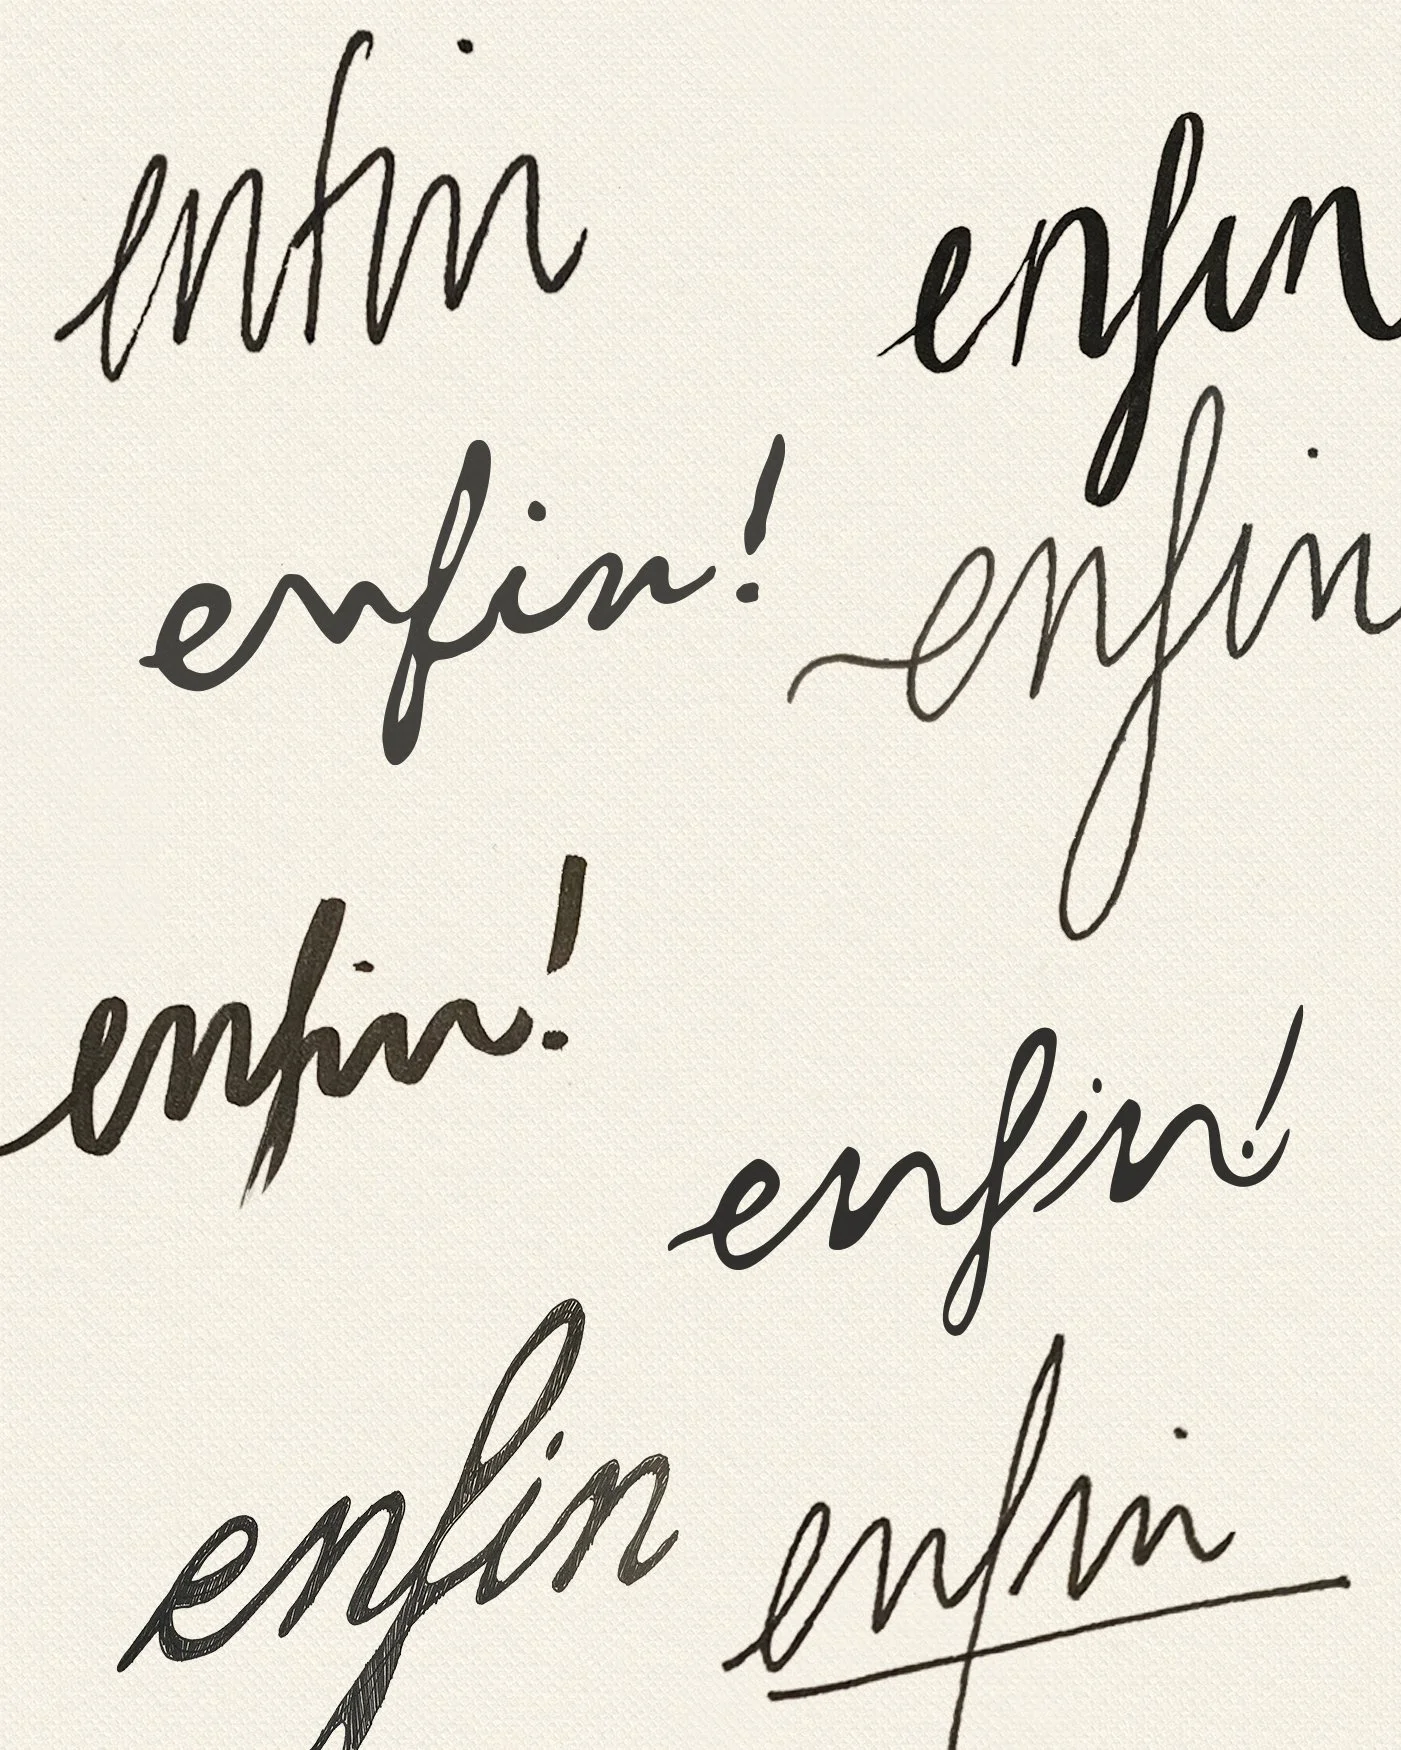 enfin
enfin
enfin!
enfin
enfin!
enfin!
enfin
enfin